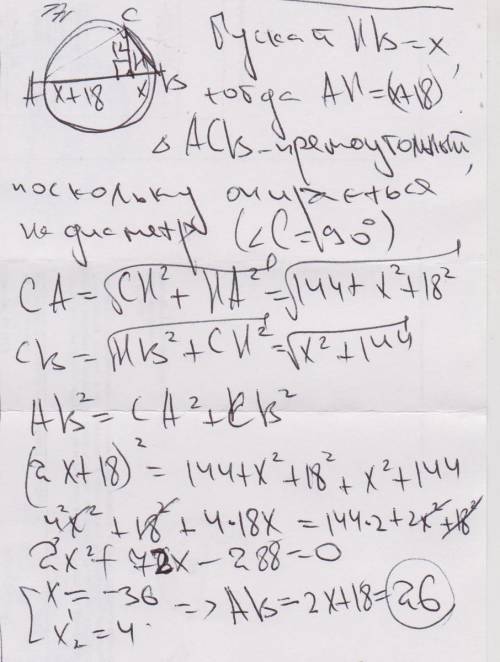 C
12
H
A x+18 x B
Пускай HB=x,
тогда AH=(x+18)
△ ACB-прямоугольный,
поскольку опирається
на диаметр (∠C=90°)
CA=√CH²+HA²=√144+x²+18²
CB=√HB²+CH²=√x²+144
AB²=CA²+CB²
(2x+18)²=144+x²+18²+x²+144
4x²+18²+4·18x=144·2+2x²+18²
2x²+72x-288=0
x=-36
x₂=4 => AB=2x+18=26